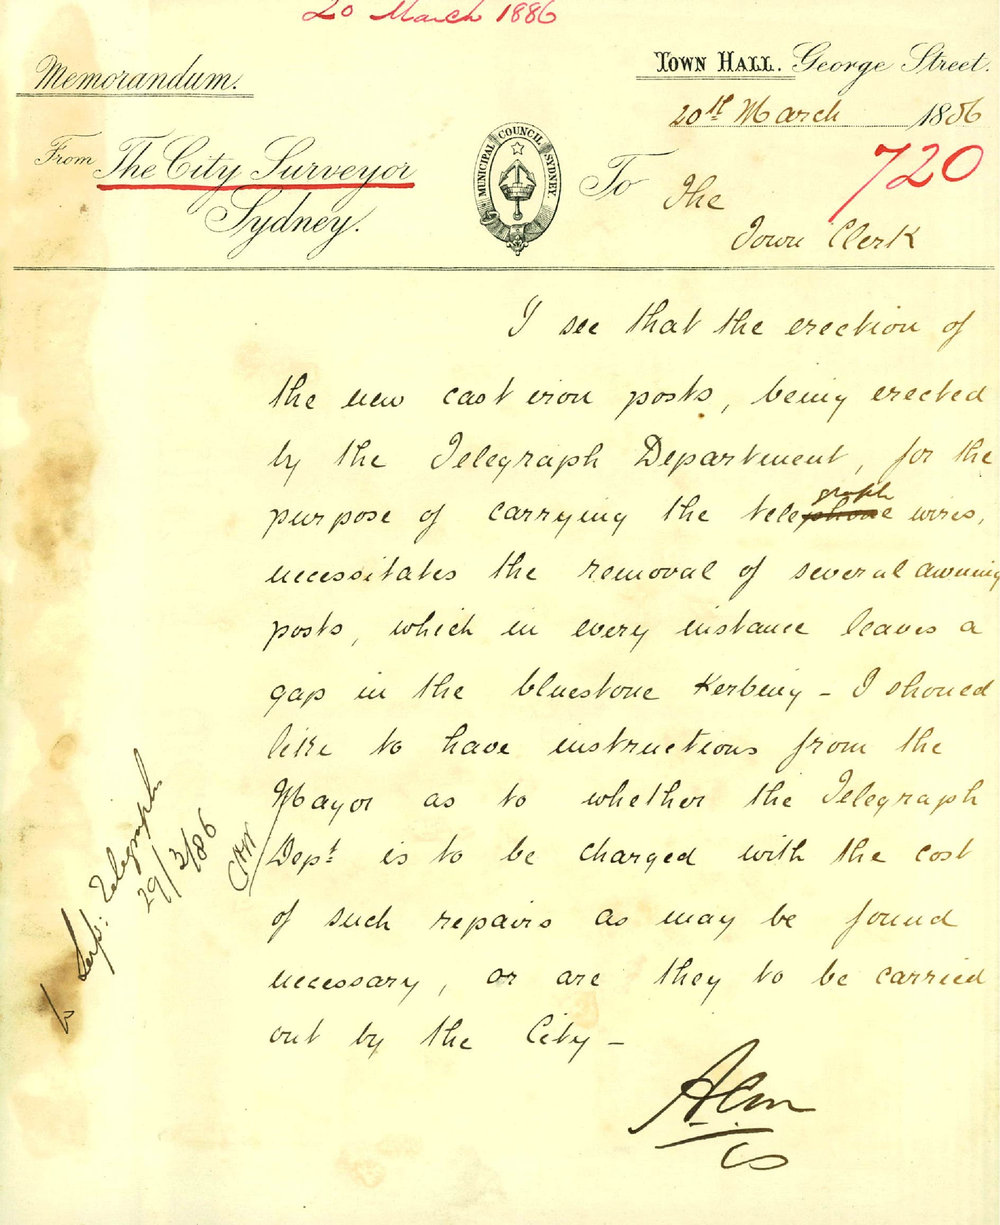 20 March 1886
Memorandum.
Town Hall. George Street.
20th March 1886
From The City Surveyor
Sydney.
MUNICIPAL COUNCIL SYDNEY.
To The
Town Clerk
720
I see that the erection of
the new cast iron posts, being erected
by the Telegraph Department, for the
graph
purpose of carrying the telephone wires,
necessitates the removal of several awning
posts, which in every instance leaves a
gap in the bluestone Kerbing – I should
like to have instructions from the
Mayor as to whether the Telegraph
Dept is to be charged with the cost
of such repairs as may be found
necessary, or are they to be carried
out by the City –
CS
Sup: Telegraphs
29/3/86